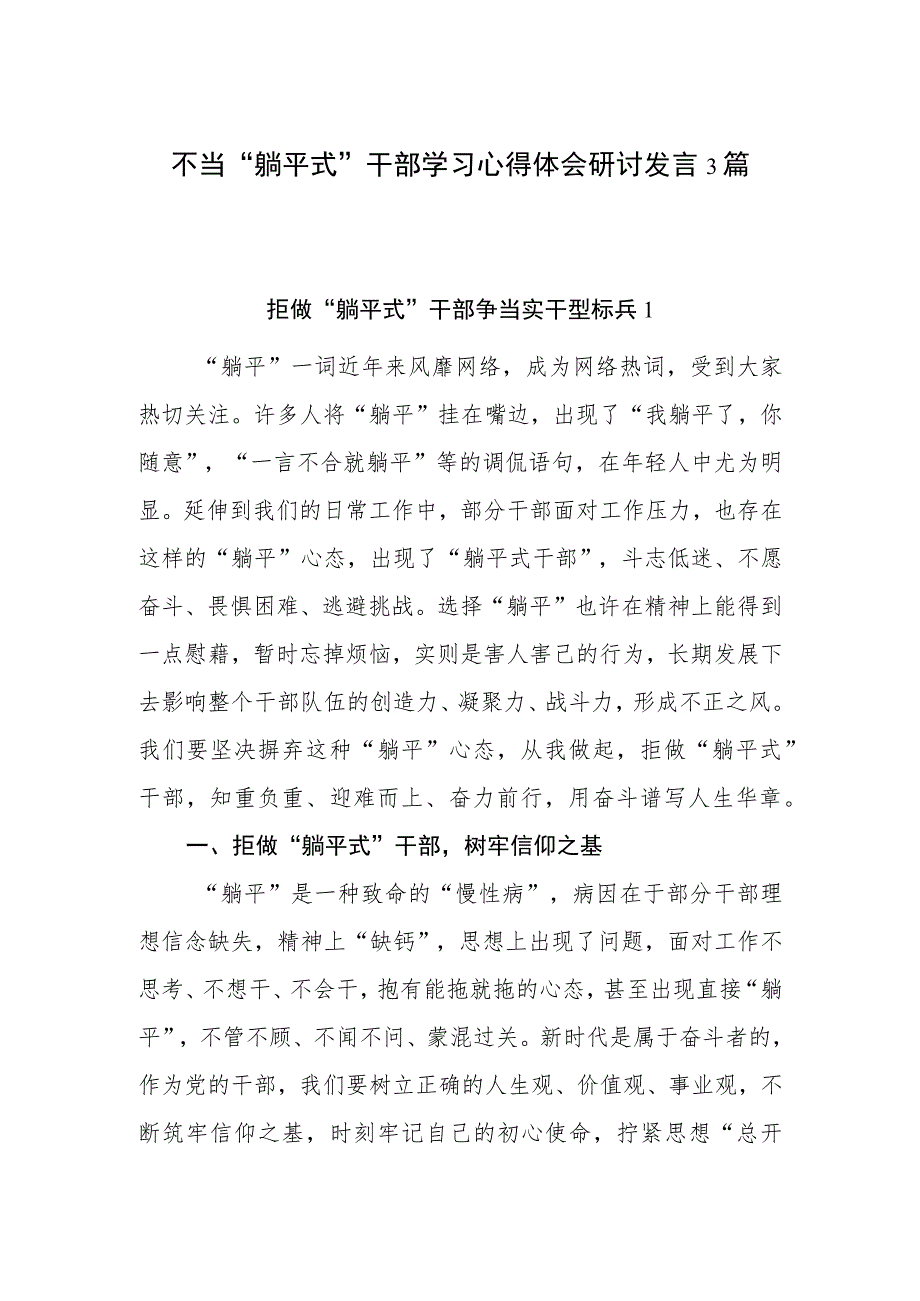 不当“躺平式”干部学习心得体会研讨发言3篇
拒做“躺平式”干部争当实干型标兵1
“躺平”一词近年来风靡网络，成为网络热词，受到大家
热切关注。许多人将“躺平”挂在嘴边，出现了“我躺平了，你
随意”，“一言不合就躺平”等的调侃语句，在年轻人中尤为明
显。延伸到我们的日常工作中，部分干部面对工作压力，也存在
这样的“躺平”心态，出现了“躺平式干部”，斗志低迷、不愿
奋斗、畏惧困难、逃避挑战。选择“躺平”也许在精神上能得到
一点慰藉，暂时忘掉烦恼，实则是害人害己的行为，长期发展下
去影响整个干部队伍的创造力、凝聚力、战斗力，形成不正之风。
我们要坚决摒弃这种“躺平”心态，从我做起，拒做“躺平式”
干部，知重负重、迎难而上、奋力前行，用奋斗谱写人生华章。
一、拒做“躺平式”干部，树牢信仰之基
“躺平”是一种致命的“慢性病”，病因在于部分干部理
想信念缺失，精神上“缺钙”，思想上出现了问题，面对工作不
思考、不想干、不会干，抱有能拖就拖的心态，甚至出现直接“躺
平”，不管不顾、不闻不问、蒙混过关。新时代是属于奋斗者的，
作为党的干部，我们要树立正确的人生观、价值观、事业观，不
断筑牢信仰之基，时刻牢记自己的初心使命，拧紧思想“总开